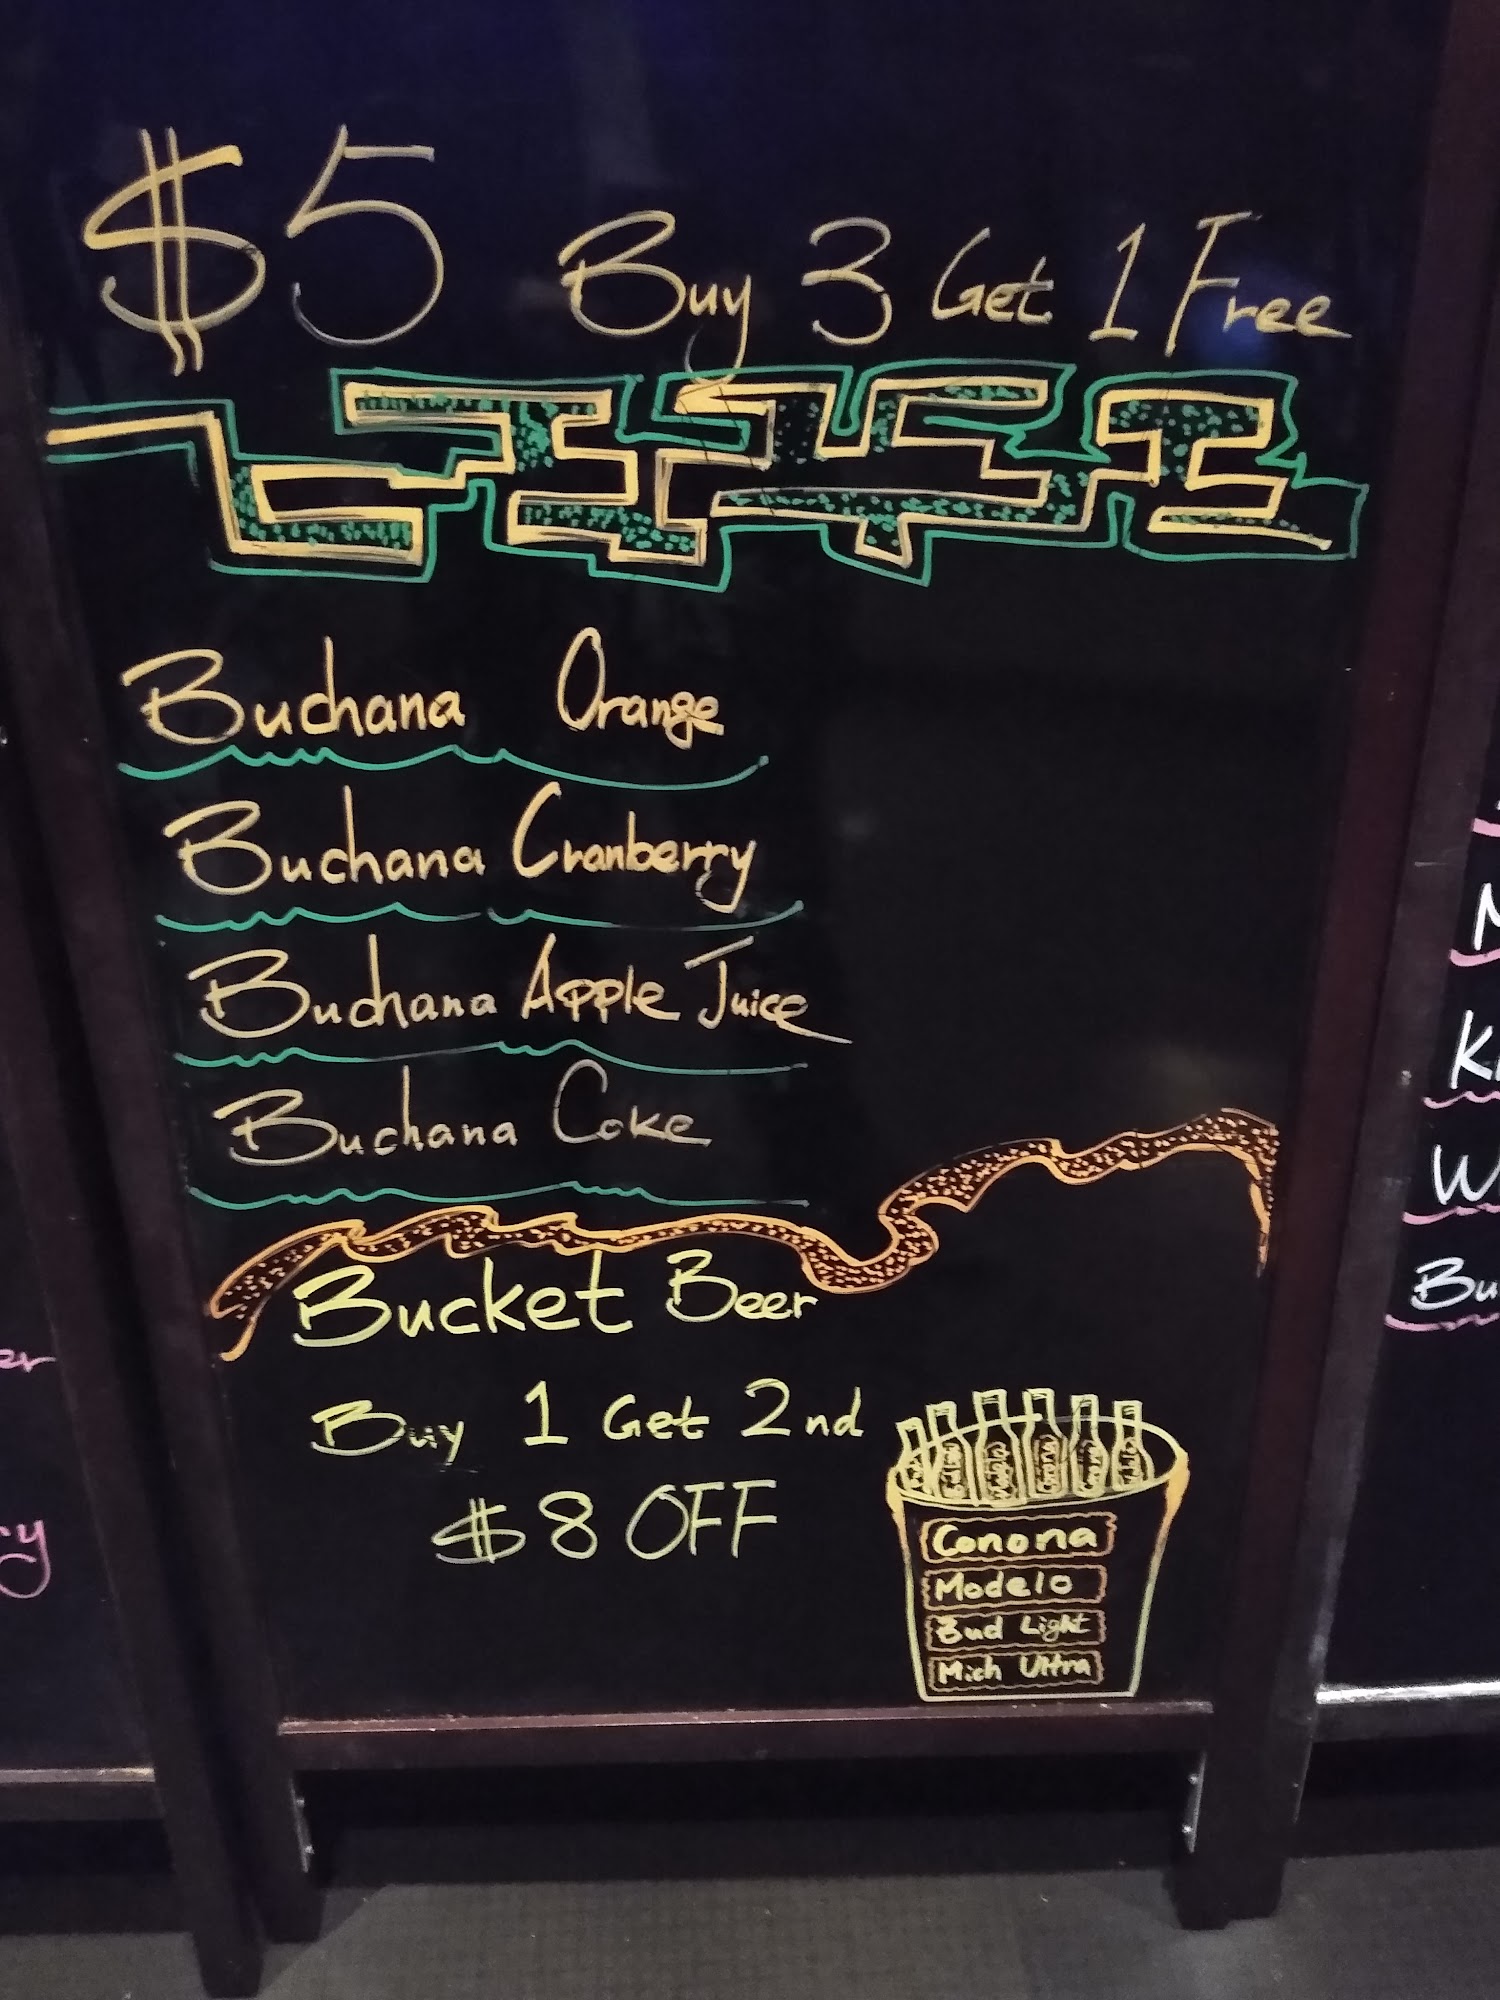 $5 Buy 3 Get 1 Free
Buchana Orange
Buchana Cranberry
Buchana Apple Juice
Buchana Coke
Bucket Beer
Buy 1 Get 2nd
$8 OFF
Conona
Modelo
Bud Light
Mich Ultra
er
ry
Bu